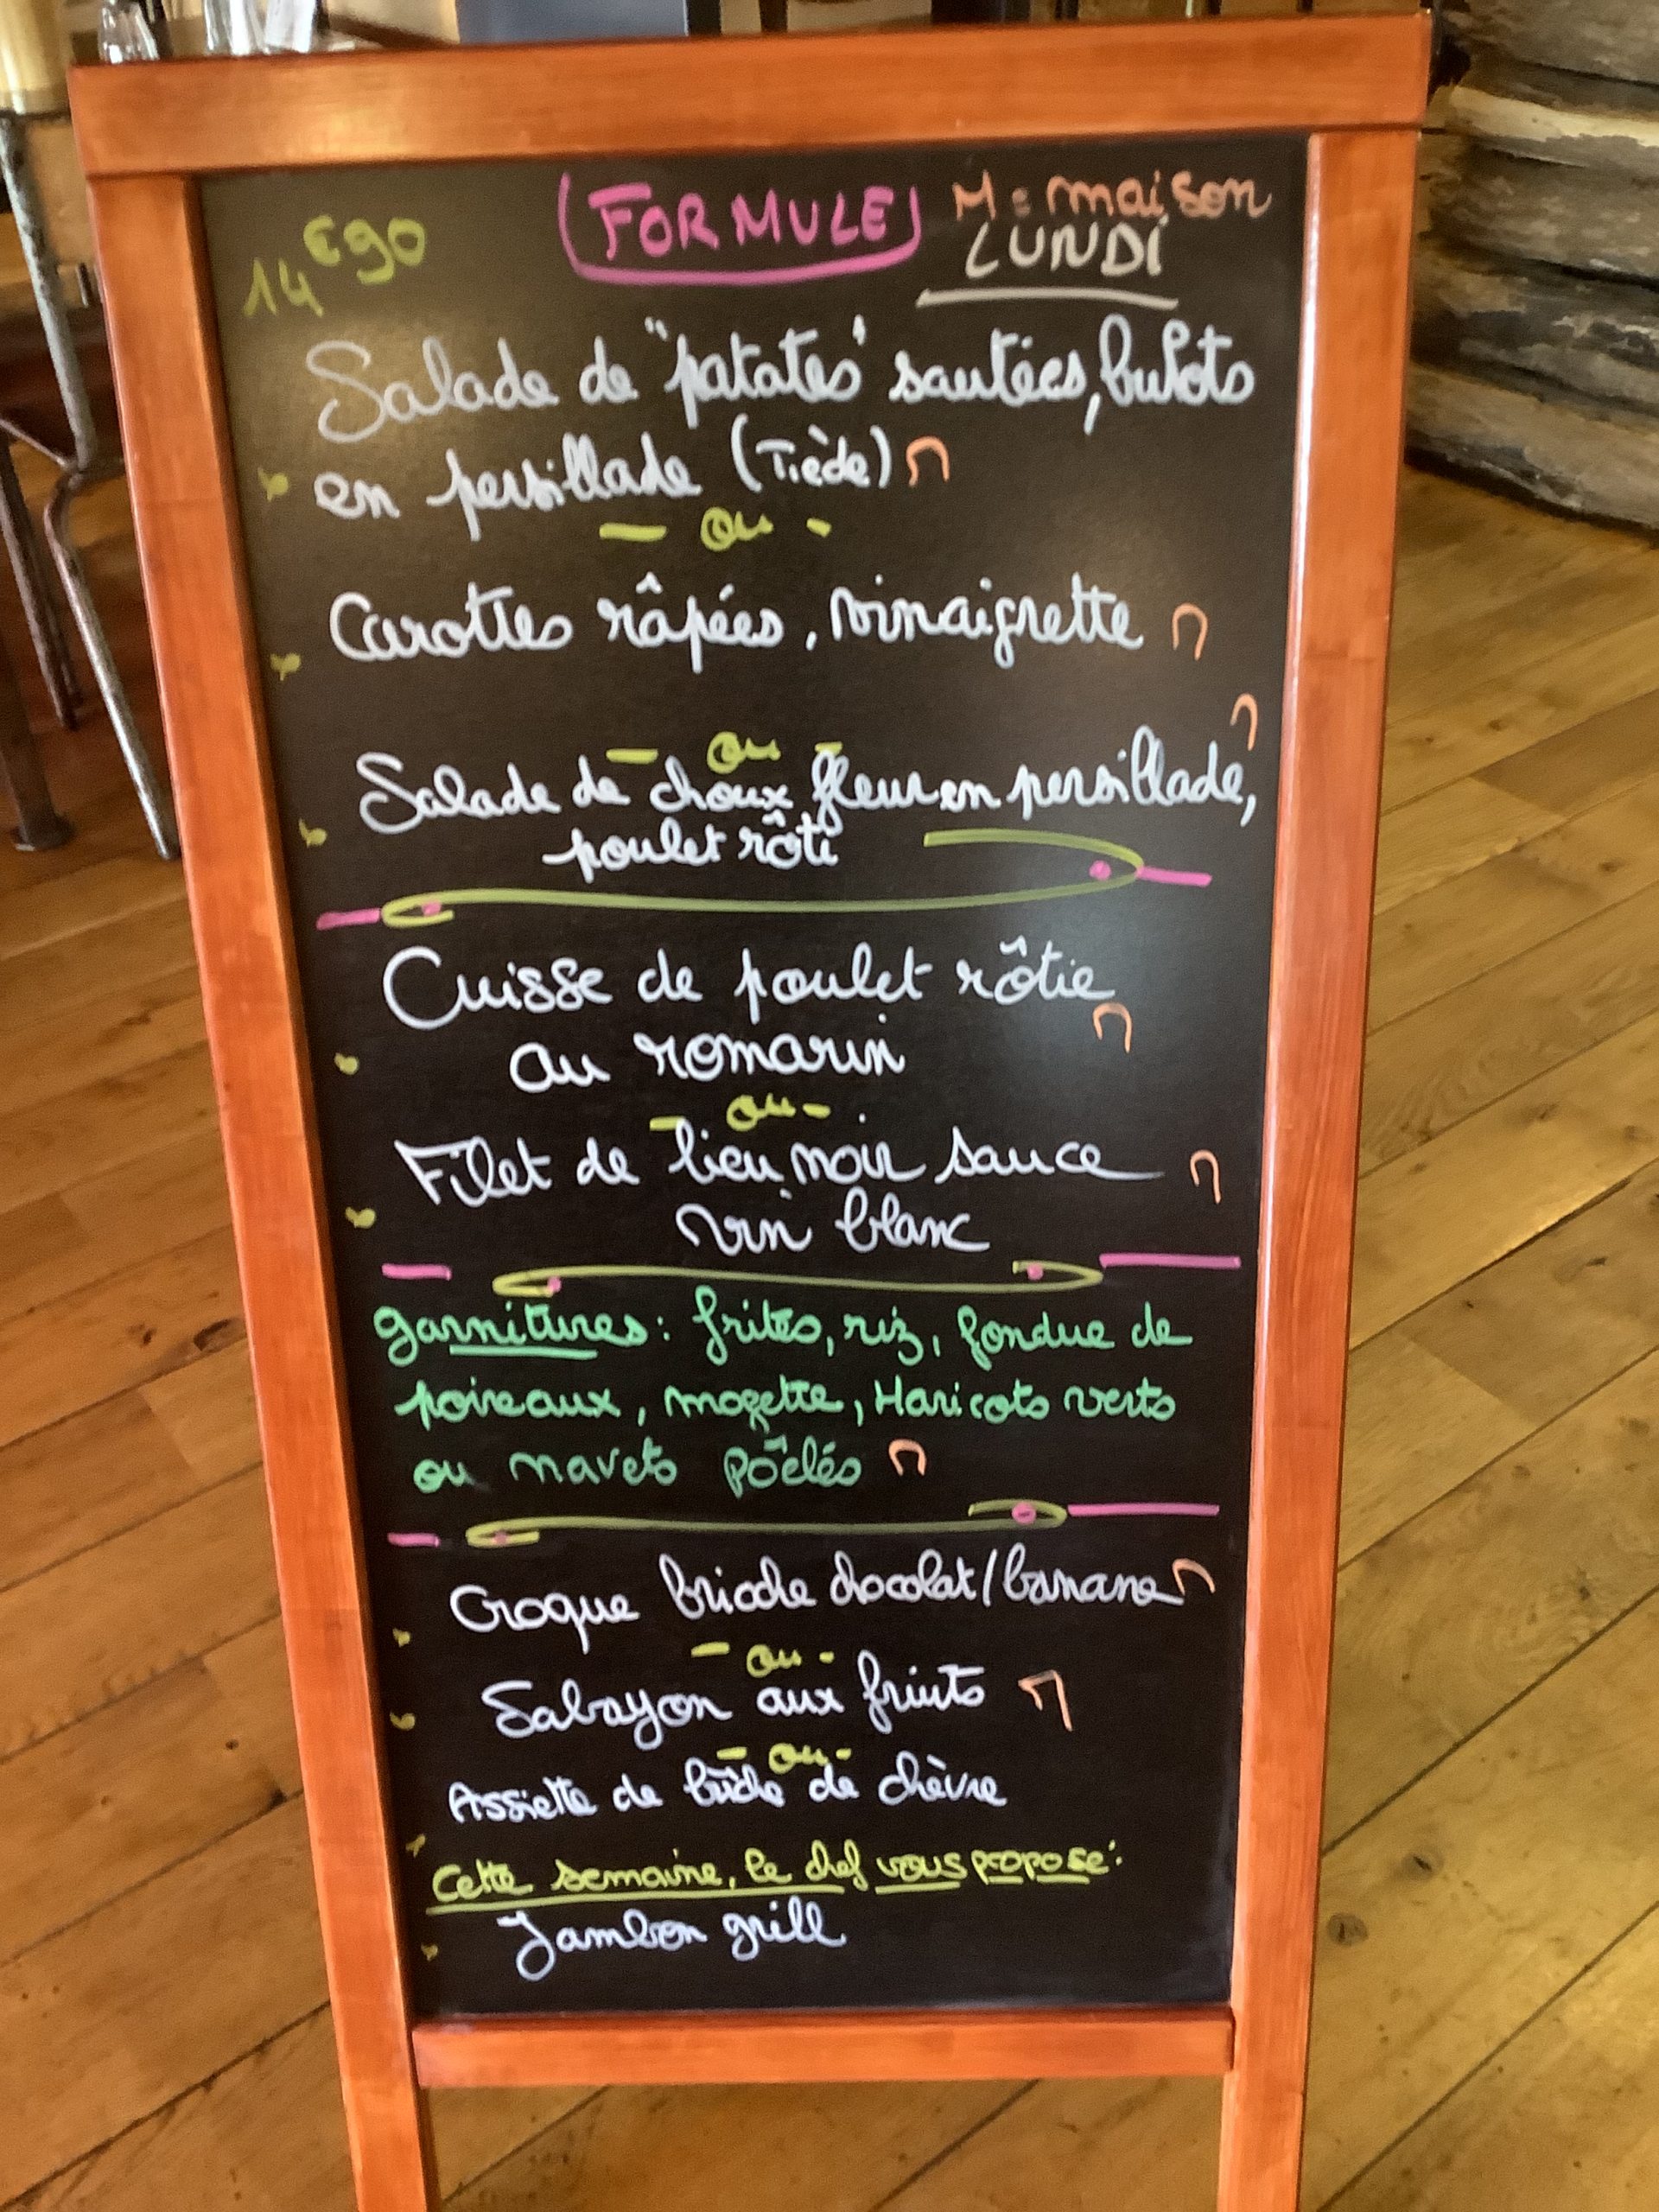 14€90 FORMULE M = maison
LUNDI
Salade de "patates" sautées, bulots
en persillade (Tiède) M
- ou -
Carottes râpées, vinaigrette M
- ou - M
Salade de choux fleur en persillade,
poulet rôti
Cuisse de poulet rôtie
au romarin M
- ou -
Filet de lieu noir sauce M
vin blanc
garnitures : frites, riz, fondue de
poireaux, mogette, Haricots verts
ou navets pôelés M
Croque brioche chocolat/banane M
- ou -
Sabayon aux fruits M
- ou -
Assiette de bûche de chèvre
Cette semaine, le chef vous propose :
Jambon grill